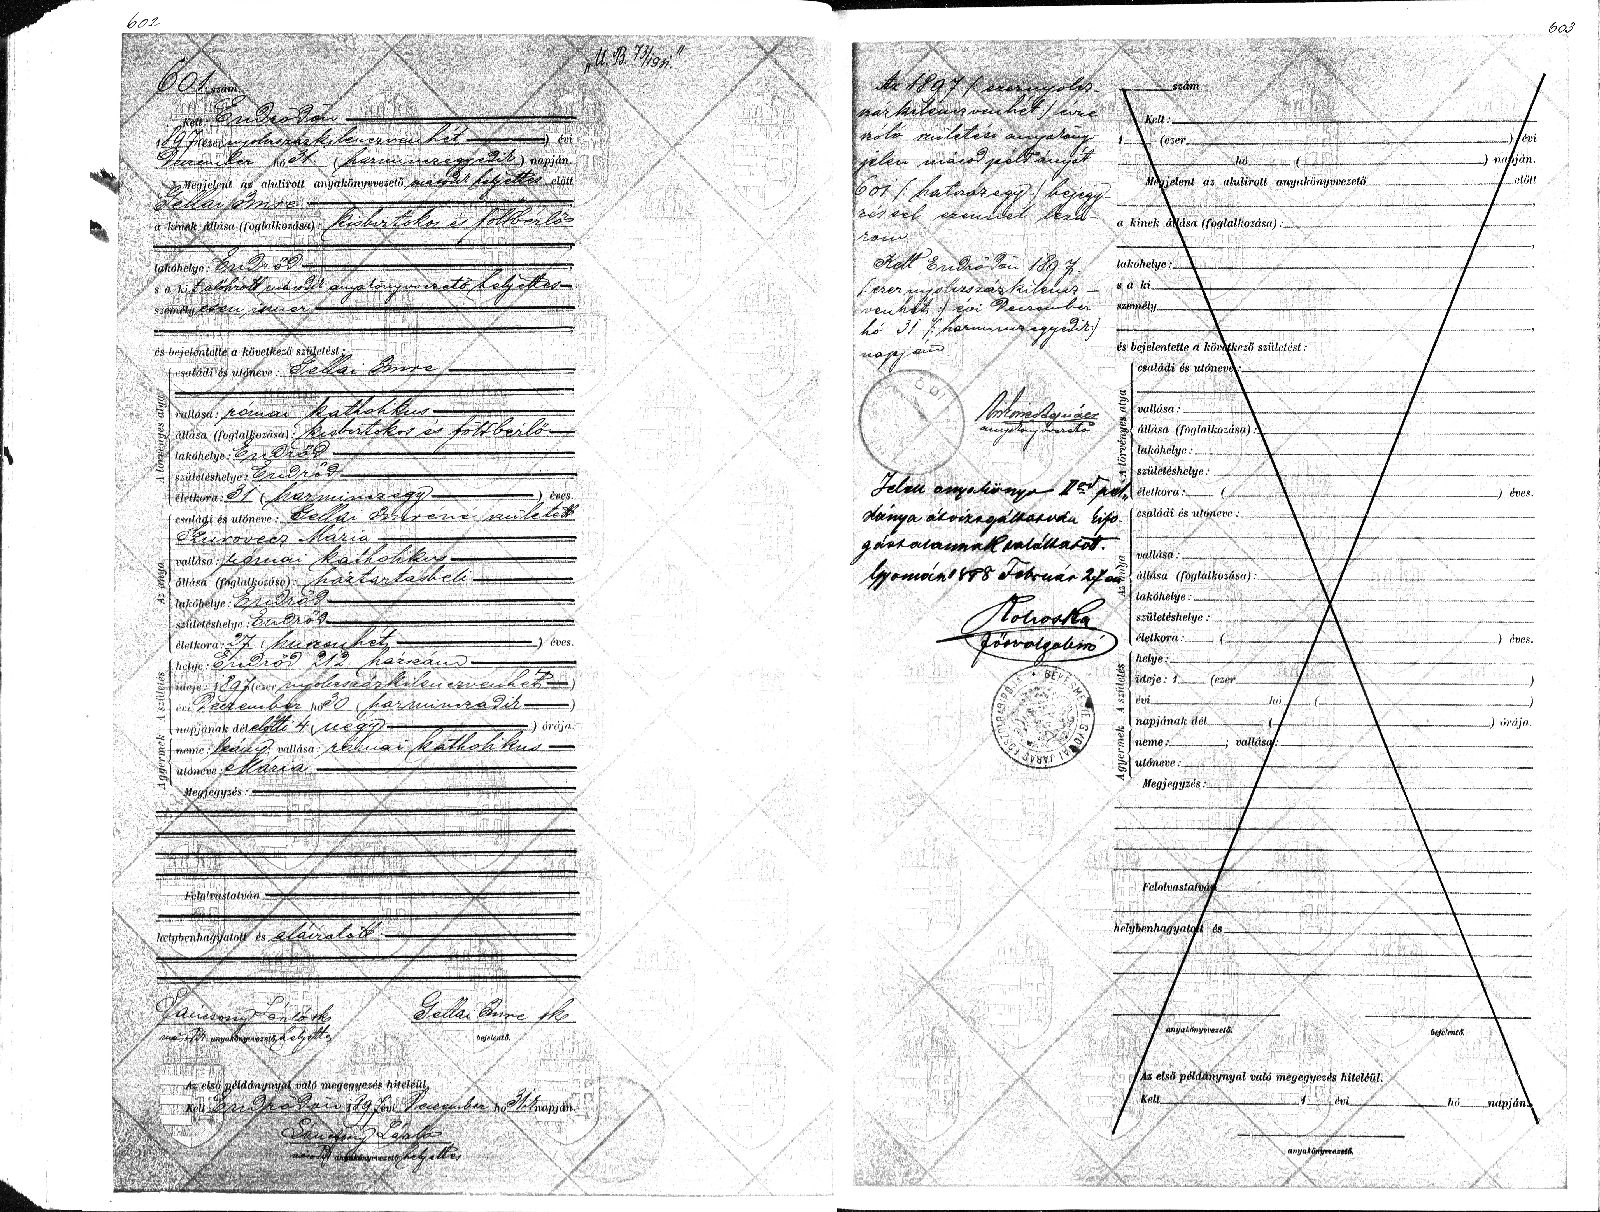 602
"U. B. 73/1931."
601 szám.
Kelt Endrődön
1897 (ezer nyolczszázkilenczvenhét) évi
Deczember hó 31 (harminczegyedik) napján.
Megjelent az alulirott anyakönyvvezető helyettes előtt
Gellai Imre
a kinek állása (foglalkozása): kisbirtokos és földbérlő
lakóhelye: Endrőd
s a kit alólirott anyakönyvvezető helyettes
személyesen ismer
és bejelentette a következő születést:
A törvényes atya
családi és utóneve: Gellai Imre
vallása: római katholikus
állása (foglalkozása): kisbirtokos és földbérlő
lakóhelye: Endrőd
születéshelye: Endrőd
életkora: 31 (harminczegy) éves.
Az anya
családi és utóneve: Gellai Imréné született
Szurovecz Mária
vallása: római katholikus
állása (foglalkozása): háztartásbeli
lakóhelye: Endrőd
születéshelye: Endrőd
életkora: 27 (huszonhét) éves.
A születés
helye: Endrőd 212 házszám
ideje: 1897 (ezer nyolczszázkilenczvenhét)
évi Deczember hó 30 (harminczadik)
napjának délelőtti 4 (négy) órája.
A gyermek
neme: leány; vallása: római katholikus
utóneve: Mária
Megjegyzés:
Felolvastatván
helybenhagyatott és aláiratott.
László sk Gellai Imre sk
anyakönyvvezető helyettes bejelentő.
Az első példánynyal való megegyezés hiteléül.
Kelt Endrődön 1897 évi December hó 31k napján.
László
anyakönyvvezető helyettes
603
Az 1897 (ezernyolcz-
százkilenczvenhét) évre
szóló születési anyakönyv
jelen másod példányát
601 (hatszázegy) bejegy-
zéssel ezennel lezá-
rom
Kelt Endrődön 1897.
(ezernyolczszázkilencz-
venhét) évi Deczember
hó 31 (harminczegyedik)
napján
anyakönyvvezető
Jelen anyakönyv II od pél-
dánya átvizsgáltatván kifo-
gástalannak találtatott.
Gyomán 1898 Február 27 én
főszolgabiró
szám
Kelt:
1 (ezer ) évi
hó ( ) napján.
Megjelent az alulirott anyakönyvvezető előtt
a kinek állása (foglalkozása):
lakóhelye:
s a ki
személy
és bejelentette a következő születést:
A törvényes atya
családi és utóneve:
vallása:
állása (foglalkozása):
lakóhelye:
születéshelye:
életkora: ( ) éves.
Az anya
családi és utóneve:
vallása:
állása (foglalkozása):
lakóhelye:
születéshelye:
életkora: ( ) éves.
A születés
helye:
ideje: 1 (ezer )
évi hó ( )
napjának dél ( ) órája.
A gyermek
neme: ; vallása:
utóneve:
Megjegyzés:
Felolvastatván
helybenhagyatott és
anyakönyvvezető. bejelentő.
Az első példánynyal való megegyezés hiteléül.
Kelt 1 évi hó napján.
anyakönyvvezető.